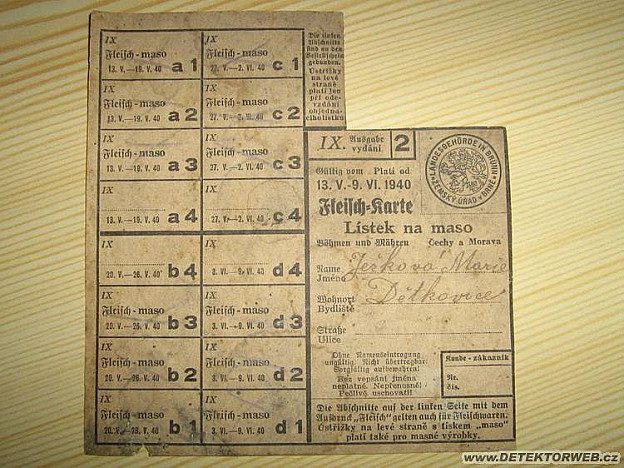 IX
Fleisch-maso
13. V.—19. V. 40 a 1
IX
Fleisch-maso
27. V.—2. VI. 40 c 1
IX
Fleisch-maso
13. V.—19. V. 40 a 2
IX
Fleisch-maso
27. V.—2. VI. 40 c 2
IX
Fleisch-maso
13. V.—19. V. 40 a 3
IX
Fleisch-maso
27. V.—2. VI. 40 c 3
IX
13. V.—19. V. 40 a 4
IX
27. V.—2. VI. 40 c 4
IX
20. V.—26. V. 40 b 4
IX
3. VI.—9. VI. 40 d 4
IX
Fleisch-maso
20. V.—26. V. 40 b 3
IX
Fleisch-maso
3. VI.—9. VI. 40 d 3
IX
Fleisch-maso
20. V.—26. V. 40 b 2
IX
Fleisch-maso
3. VI.—9. VI. 40 d 2
IX
Fleisch-maso
20. V.—26. V. 40 b 1
IX
Fleisch-maso
3. VI.—9. VI. 40 d 1
Die linken
Abschnitte
sind an den
gebunden.
Ústřižky
na levé
straně
platí jen
při ode-
vzdání
objedna-
cího lístku
IX. Ausgabe
vydání 2
LANDESBEHÖRDE IN BRÜNN
ZEMSKÝ ÚŘAD V BRNĚ
Gültig vom Platí od
13. V.-9. VI. 1940
Fleisch-Karte
Lístek na maso
Böhmen und Mähren Čechy a Morava
Name
Jméno Ježková Marie
Wohnort
Bydliště Dětkovice
Straße
Ulice
Ohne Namenseintragung
ungültig. Nicht übertragbar.
Sorgfältig aufbewahren!
Bez vepsání jména
neplatné. Nepřenosné!
Pečlivě uschovati!
Kunde - zákazník
Nr.
čís.
Die Abschnitte auf der linken Seite mit dem
Aufdruck „Fleisch" gelten auch für Fleischwaren.
Ústřižky na levé straně s tiskem „maso"
platí také pro masné výrobky.
WWW.DETEKTORWEB.CZ